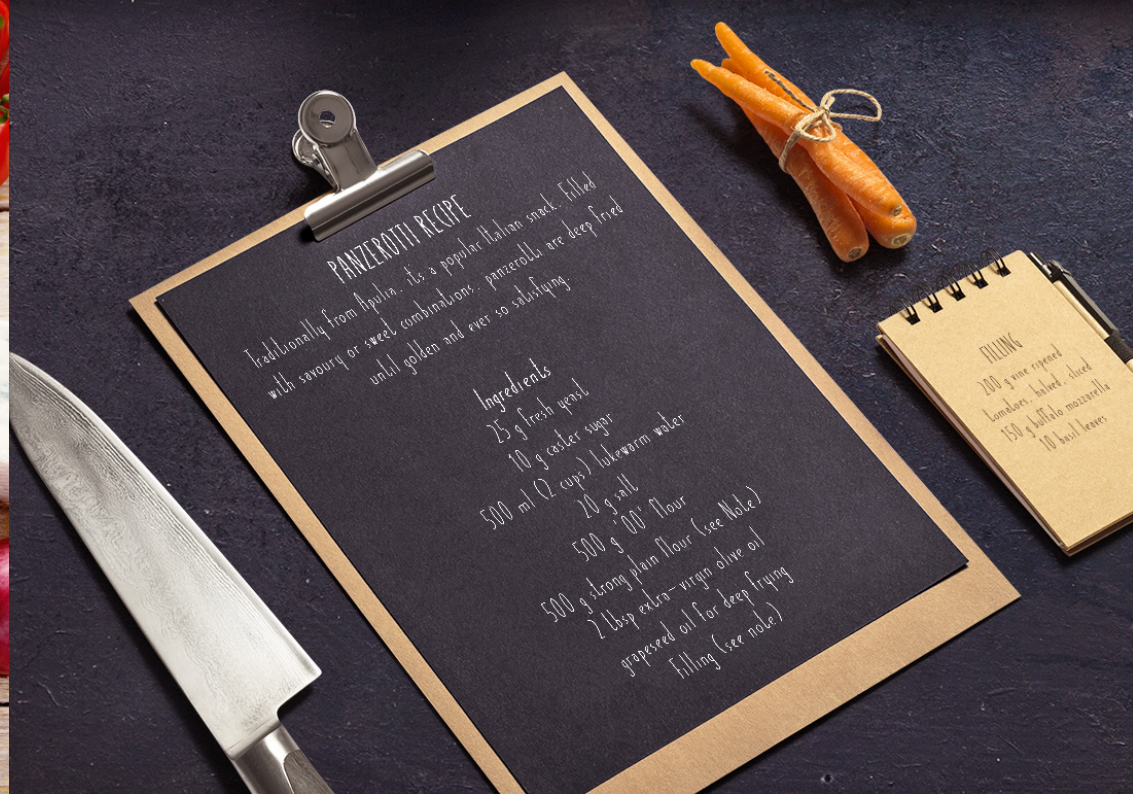 PANZEROTTI RECIPE
Traditionally from Apulia, it's a popular Italian snack. Filled
with savoury or sweet combinations, panzerotti are deep fried
until golden and ever so satisfying.
Ingredients
25 g fresh yeast
10 g caster sugar
500 ml (2 cups) lukewarm water
20 g salt
500 g '00' flour
500 g strong plain flour (see Note)
2 tbsp extra-virgin olive oil
grapeseed oil for deep frying
Filling (see note)
FILLING
200 g vine ripened
tomatoes, halved, sliced
150 g buffalo mozzarella
10 basil leaves